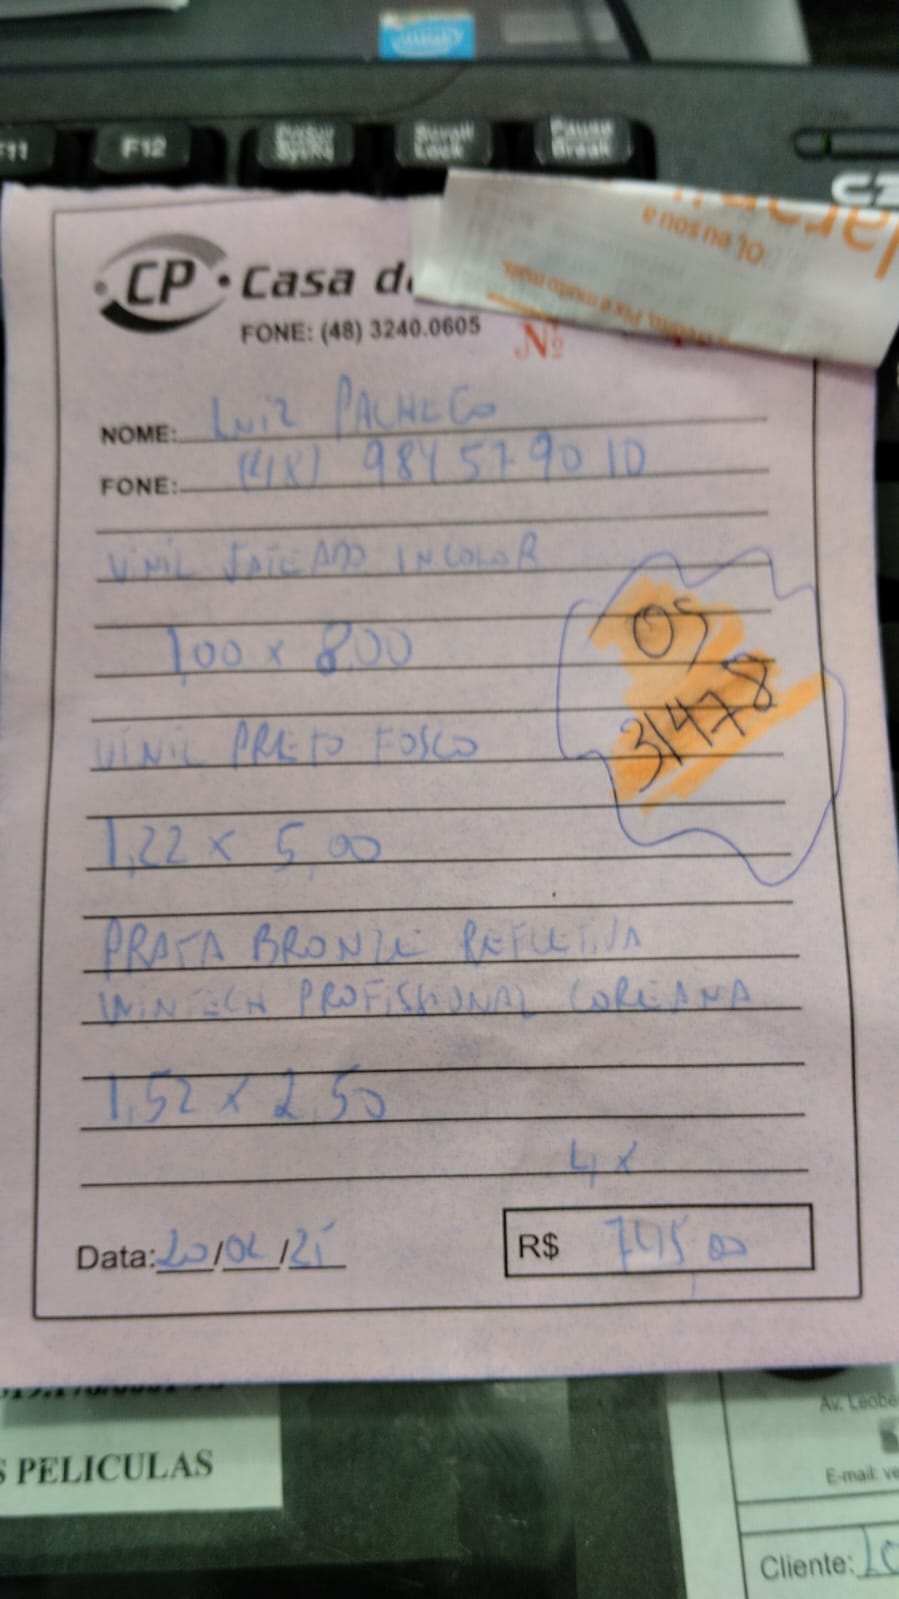 F11
F12
Pause
Break
Lock
CP
Casa de
FONE: (48) 3240.0605
Nº
OI, eu sou a
NOME: LUIZ PACHECO
FONE: (48) 984579010
VINIL JATEADO INCOLOR
1,00 x 8,00
OS
31478
VINIL PRETO FOSCO
1,22 x 5,00
PRATA BRONZE REFLETIVA
WINTECH PROFISSIONAL COREANA
1,52 x 2,50
4x
Data: 20/
R$ 745,00
S PELICULAS
Av. Leobe
E-mail: ve
Cliente: